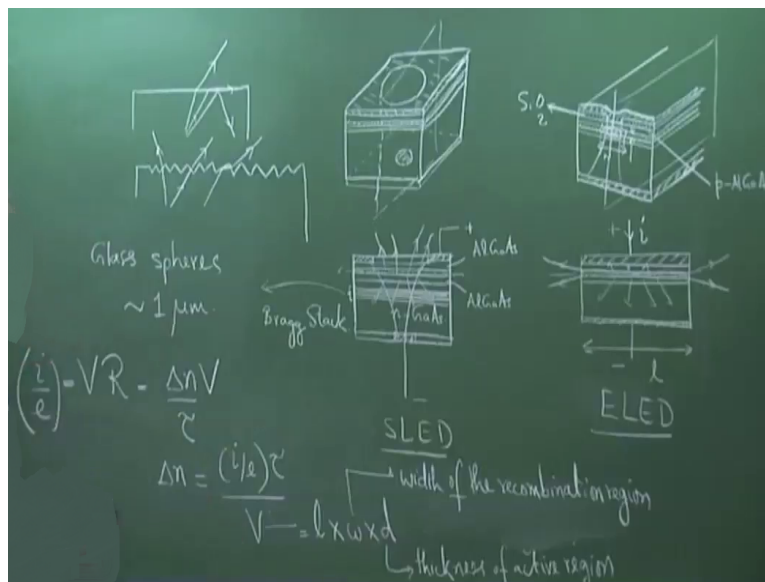 SiO2
p-AlGaAs
Glass spheres
~ 1 μm.
+
AlGaAs
AlGaAs
n-GaAs
Bragg Stack
-
SLED
+ i
- l
ELED
(i/e) = VR = Δn V / τ
Δn = (i/e) τ / V
V = l x w x d
width of the recombination region
thickness of active region